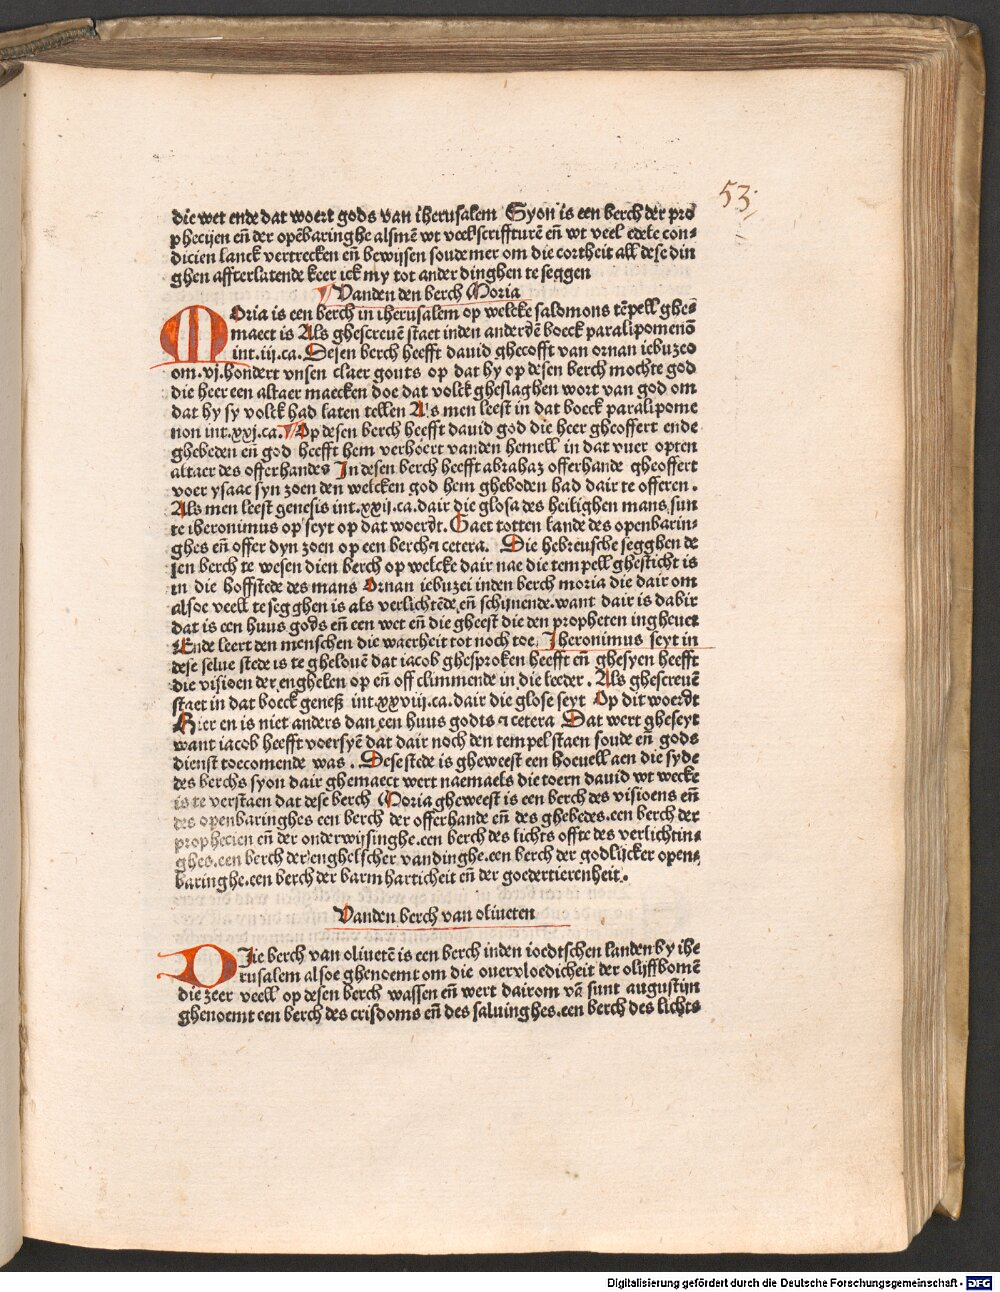 53.
die wet ende dat woert gods van iherusalem Syon is een berch der pro
phecijen en̄ der opēbaringhe alsmē wt veel scriffturē en̄ wt veel edele con-
dicien lanck vertrecken en̄ bewijsen soude mer om die cortheit all dese din
ghen affterlatende keer ick my tot ander dinghen te seggen
Vanden den berch Moria
MOria is een berch in iherusalem op welcke salomons tēpell ghe-
maect is Als ghescreuē staet inden anderdē boeck paralipomenō
int .iij. ca. Desen berch heefft dauid ghecofft van ornan iebuzeo
om .vj. hondert vnsen claer gouts op dat hy op desen berch mochte god
die heer een altaer maecken doe dat volck gheslaghen wort van god om
dat hy sy volck had laten tellen Als men leest in dat boeck paralipome
non int .xxj. ca. Op desen berch heefft dauid god die heer gheoffert ende
ghebeden en̄ god heefft hem verhoert vanden hemell in dat vuer opten
altaer des offerhandes In desen berch heefft abrahaz offerhande gheoffert
voer ysaac syn zoen den welcken god hem gheboden had dair te offeren.
Als men leest genesis int .xxij. ca. dair die glosa des heilighen mans sun
te iheronimus op seyt op dat woerdt. Gaet totten lande des openbarin-
ghes en̄ offer dyn zoen op een berch ꝛ cetera. Die hebreusche segghen de
sen berch te wesen dien berch op welcke dair nae die tempell ghesticht is
in die hoffstede des mans Ornan iebuzei inden berch moria die dair om
alsoe veell te segghen is als verlichtēde en̄ schijnende. want dair is dabir
dat is een huus gods en̄ een wet en̄ die gheest die den propheten ingheuet
Ende leert den menschen die waerheit tot noch toe. Iheronimus seyt in
dese selue stede is te ghelouē dat iacob ghesproken heefft en̄ ghesyen heefft
die visioen der enghelen op en̄ off climmende in die leeder. Als ghescreuē
staet in dat boeck genesꝭ int .xxviij. ca. dair die glose seyt Op dit woerdt
Hier en is niet anders dan een huus godts ꝛ cetera Dat wert gheseyt
want iacob heefft voersyē dat dair noch den tempel staen soude en̄ gods
dienst toecomende was. Dese stede is gheweest een hoeuell aen die syde
des berchs syon dair ghemaect wert naemaels die toern dauid wt wecke
is te verstaen dat dese berch Moria gheweest is een berch des visioens en̄
des openbaringhes een berch der offerhande en̄ des ghebedes. een berch der
prophecien en̄ der onderwijsinghe. een berch des lichts offte des verlichtin-
ghes. een berch der enghelscher vandinghe. een berch der godlijcker open-
baringhe. een berch der barmharticheit en̄ der goedertierenheit.
Vanden berch van oliueten
DIe berch van oliuetē is een berch inden ioedtschen landen by ihe
rusalem alsoe ghenoemt om die ouervloedicheit der olijffbomē
die zeer veell op desen berch wassen en̄ wert dairom vā sunt augustijn
ghenoemt een berch des crisdoms en̄ des saluinghes. een berch des lichts
Digitalisierung gefördert durch die Deutsche Forschungsgemeinschaft - DFG